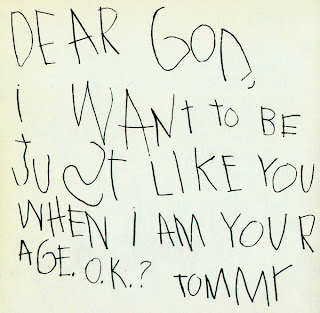 DEAR GOD,
i WANT TO BE
JUST LIKE YOU
WHEN i AM YOUR
AGE. O.K.? TOMMY